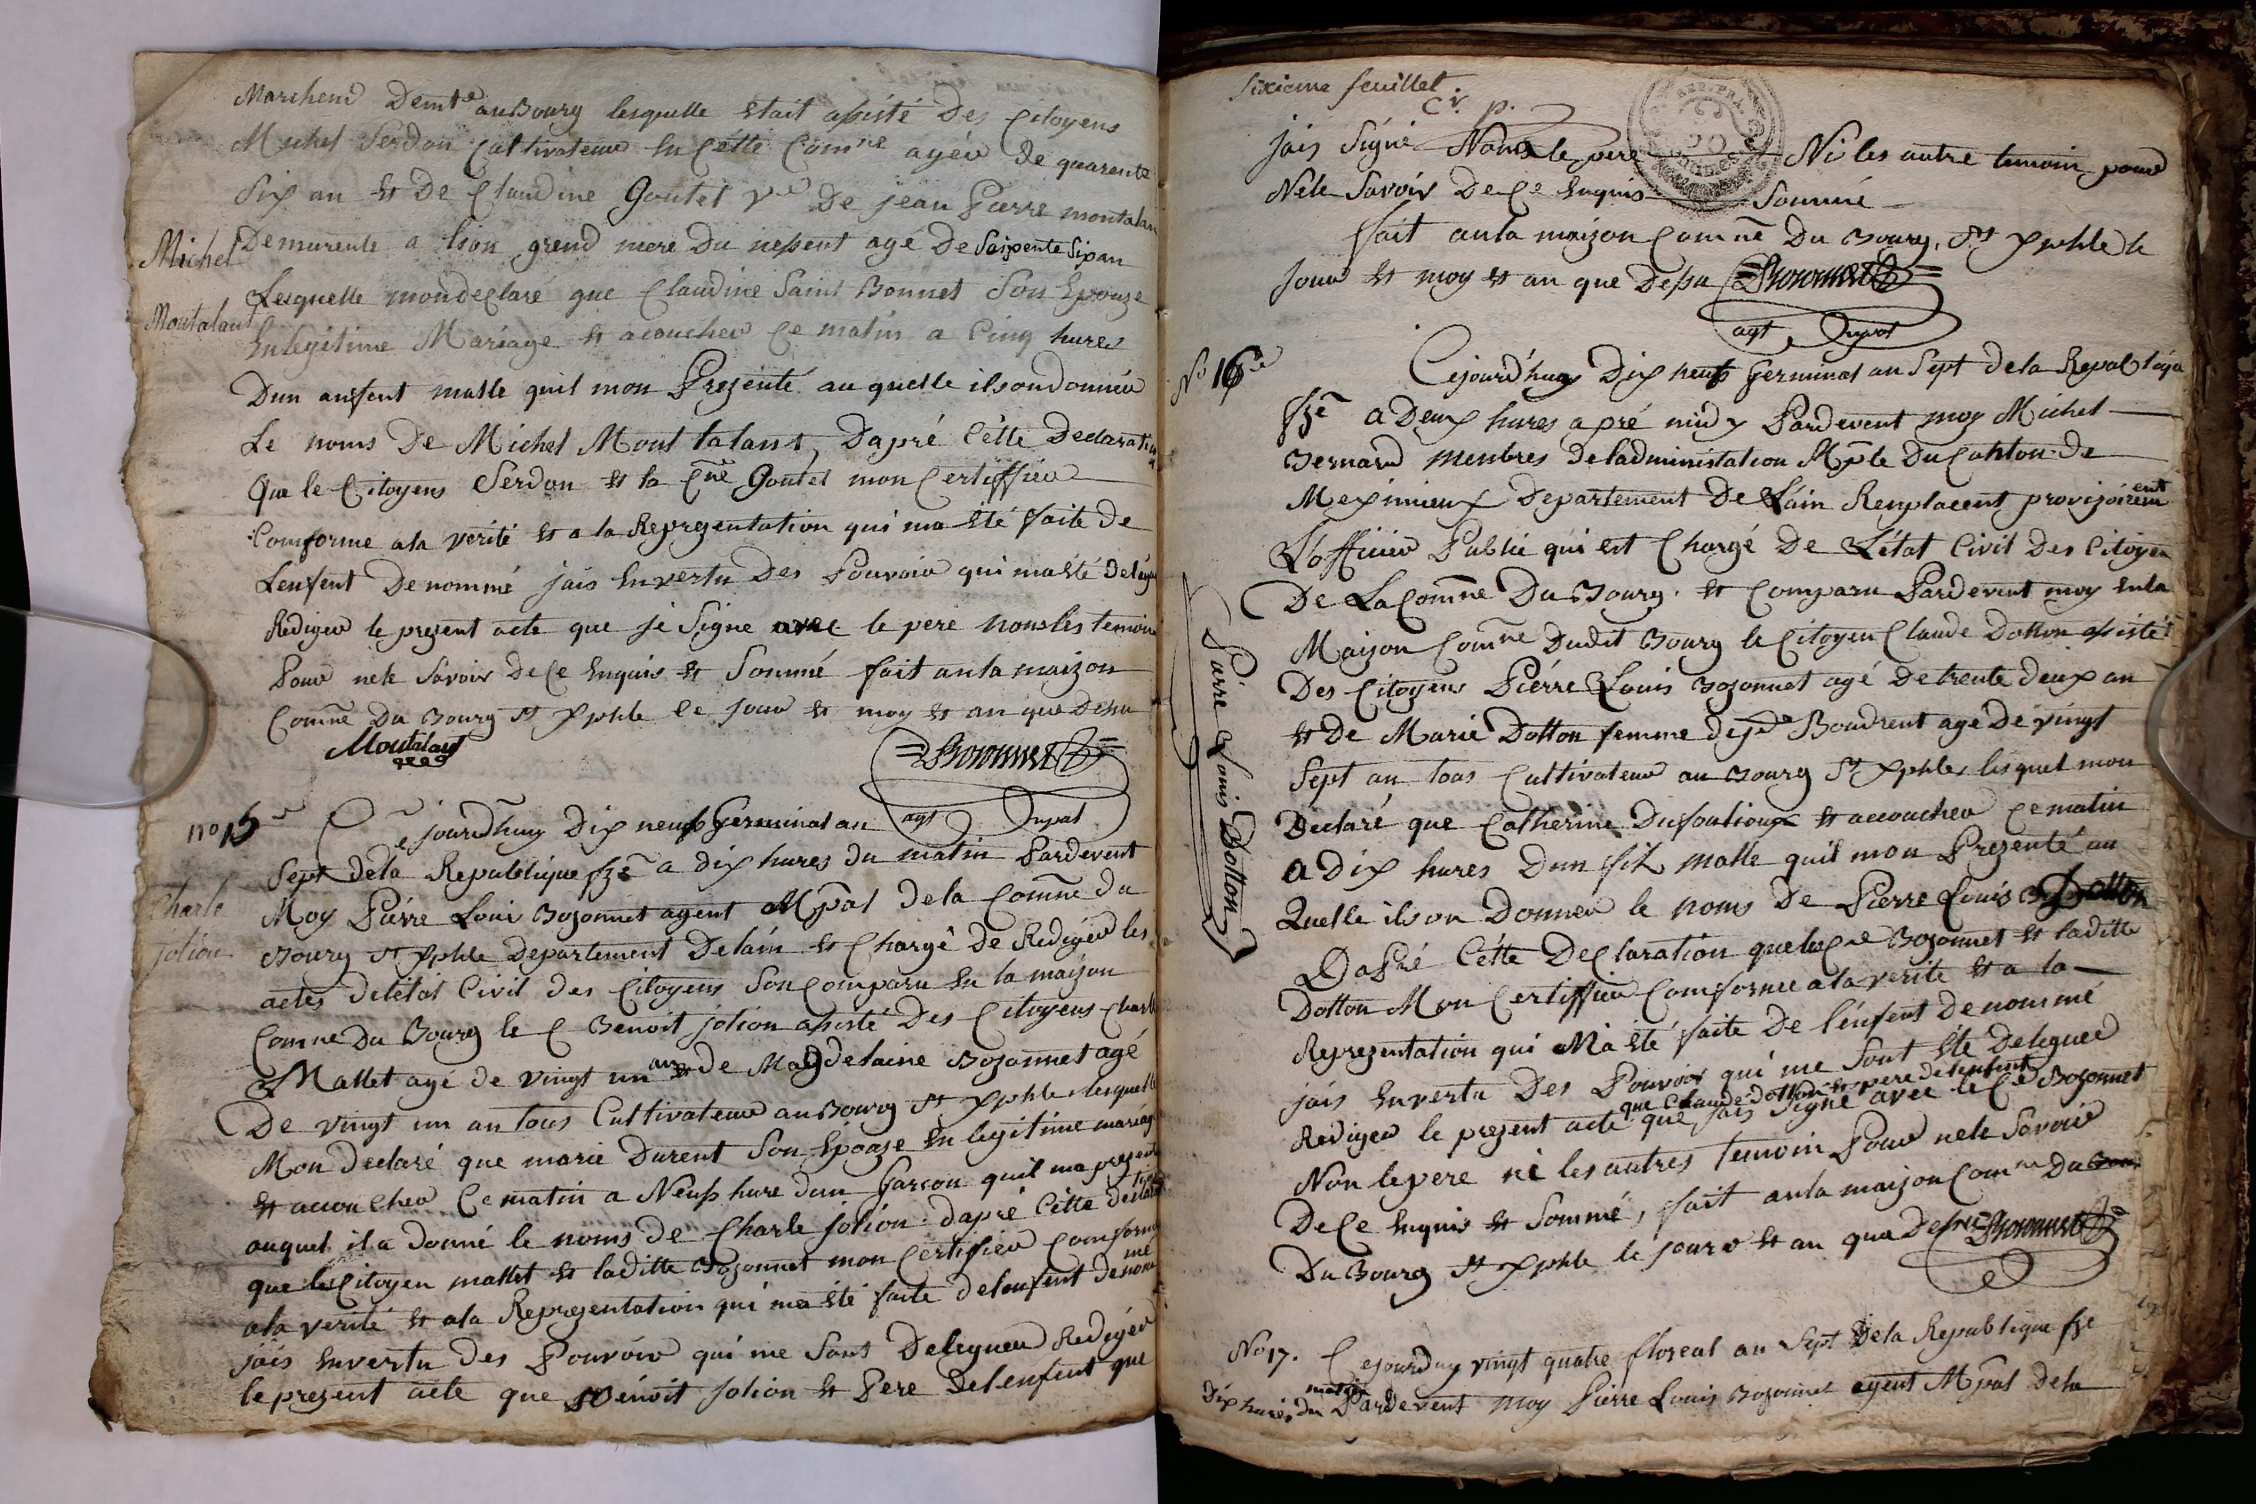 Marchend Demte au Bourg lesquelle était asisté Des Citoyens
Michel Serdon Cultivateur En Cette Comne agéé de quarente
Six an et De Claudine Goutel Ve De jean Pierre montalan
Michel
Demurente a lion grend mere Du nessent agé De Soispente Six an
Lesquelle mondeclaré que Claudine Saint Bonnet Son Epouze
Montalant
En legitime Mariage et acoucheé Ce matin a Cinq hures
Dun anfent malle quil mon Prezenté au quelle ilsondonnéé
Le noms De Michel Mont talant, Dapré Cétte Declaration
Que le Citoyens Serdon et la Cne Goutel mon Certiffiéé
Comforme ala verité et a la Reprezentation qui ma été faite de
Lenfent Denommé jais En vertu Des Pouvoir qui masté delegué
Rediger le prezent acte que je Signe avec le pere nonsles temoin
Pour nele Savoir De Ce Enquis et Sommé fait anla maizon
Comne Du Bourg St Xpohle le jour et moy et an que Desu
Montalant
Bozonnet
agt mpal
no 15e
Cejourdhuy Dix neuf Germinal an
Sept dela Republique fze a dix hures du matin Pardevent
Charle
jolion
Moy Piérre Louis Bozonnet agent Mpal dela Comne du
Bourg St Xpohle Departement Delain et Chargé de Redigéé les
actes deletat Civil des Citoyens Son Comparu En la maison
Comne Du Bourg le C Benoit jolion asisté Des Citoyens Charle
Mallet agé de vingt un an et de Magdelaine Bozonnet agé
De vingt un an tous Cultivateur au Bourg St Xpohle lesquelle
Mon declaré que marie Durent Son Epouze En legitime mariage
et acoucheé Ce matin a Neuf hure dun Garcon quil ma prezenté
auquel il a donné le noms de Charle jolion dapré Cétte declaration
que le Citoyen mallet et laditte Bozonnet mon Certifiéé Comforme
ala verité et ala Reprezentation qui ma été faite delenfent denommé
jais Envertu des Pouvoir qui me Sont Delegueé Redigéé
le prezent acte que Bénoit jolion et Pere Delenfent que
Sixieme feuillet.
jais Signé Non le pere Ni les autre temoin pour
Nele Savoir De Ce Enquis Sommé
fait anla maizon Comne Du Bourg St Xpohle le
Jour et moy et an que Desu Bozonnet
agt mpal
No 16e
Cejourdhuy Dix neuf Germinal an Sept dela Republique
fze a Deux hures apré midy Pardevent moy Michel
Bernard menbres deladministation Mple Du Canton de
Meximieux Departement De Lain Remplacent provizoirement
Lofficier Public qui est Chargé De Létat Civil Des Citoyen
De La Comne Du Bourg. et Comparu Pardevent moy En la
Maison Comne Dudit Bourg le Citoyen Claude Dotton asisté
Des Citoyens Piérre Louis Bozonnet agé de trente deux an
Pairre Louis Dotton
et De Marie Dotton femme de je Boudrent agé De vingt
Sept an tous Cultivateur au Bourg St Xpohle, lesquel mon
Declaré que Catherine Dufoulioux et accoucheé Ce matin
a Dix hures Dun fil malle quil mon Prezenté au
Quelle ilson Donneé le noms De Pierre Louis Dotton
Dapré Cétte Declaration que le Cne Bozonnet et laditte
Dotton Mon Certiffiéé Comforme ala verité et a la
Reprezentation qui Ma été faite De lénfent Denommé
jais En vertu Des Pouvoir qui me Sont été Delegueé
Redigeé le prezent acte que Claude Dotton et pere delenfent que jais Signé avec le Cn Bozonnet
Non le pere ni les autres temoin Pour nele Savoir
De Ce Enquis et Sommé, fait anla maison Comne Du
Du Bourg St Xpohle le jour et an que Desu Bozonnet
No 17.
Cejourduy vingt quatre floreal an Sept Dela Republique fze
Dix hures du matin Pardevent moy Piérre Louis Bozonnet agent Mpal dela